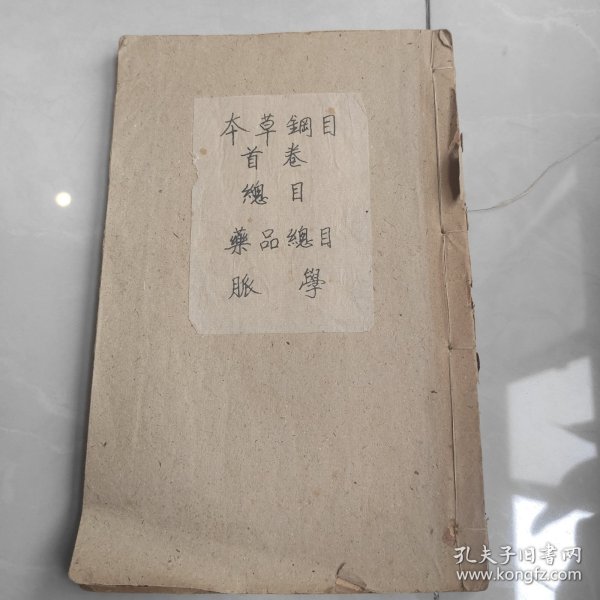 本草鋼目
首卷
總目
藥品總目
脈學
孔夫子旧书网
www.kongfz.com